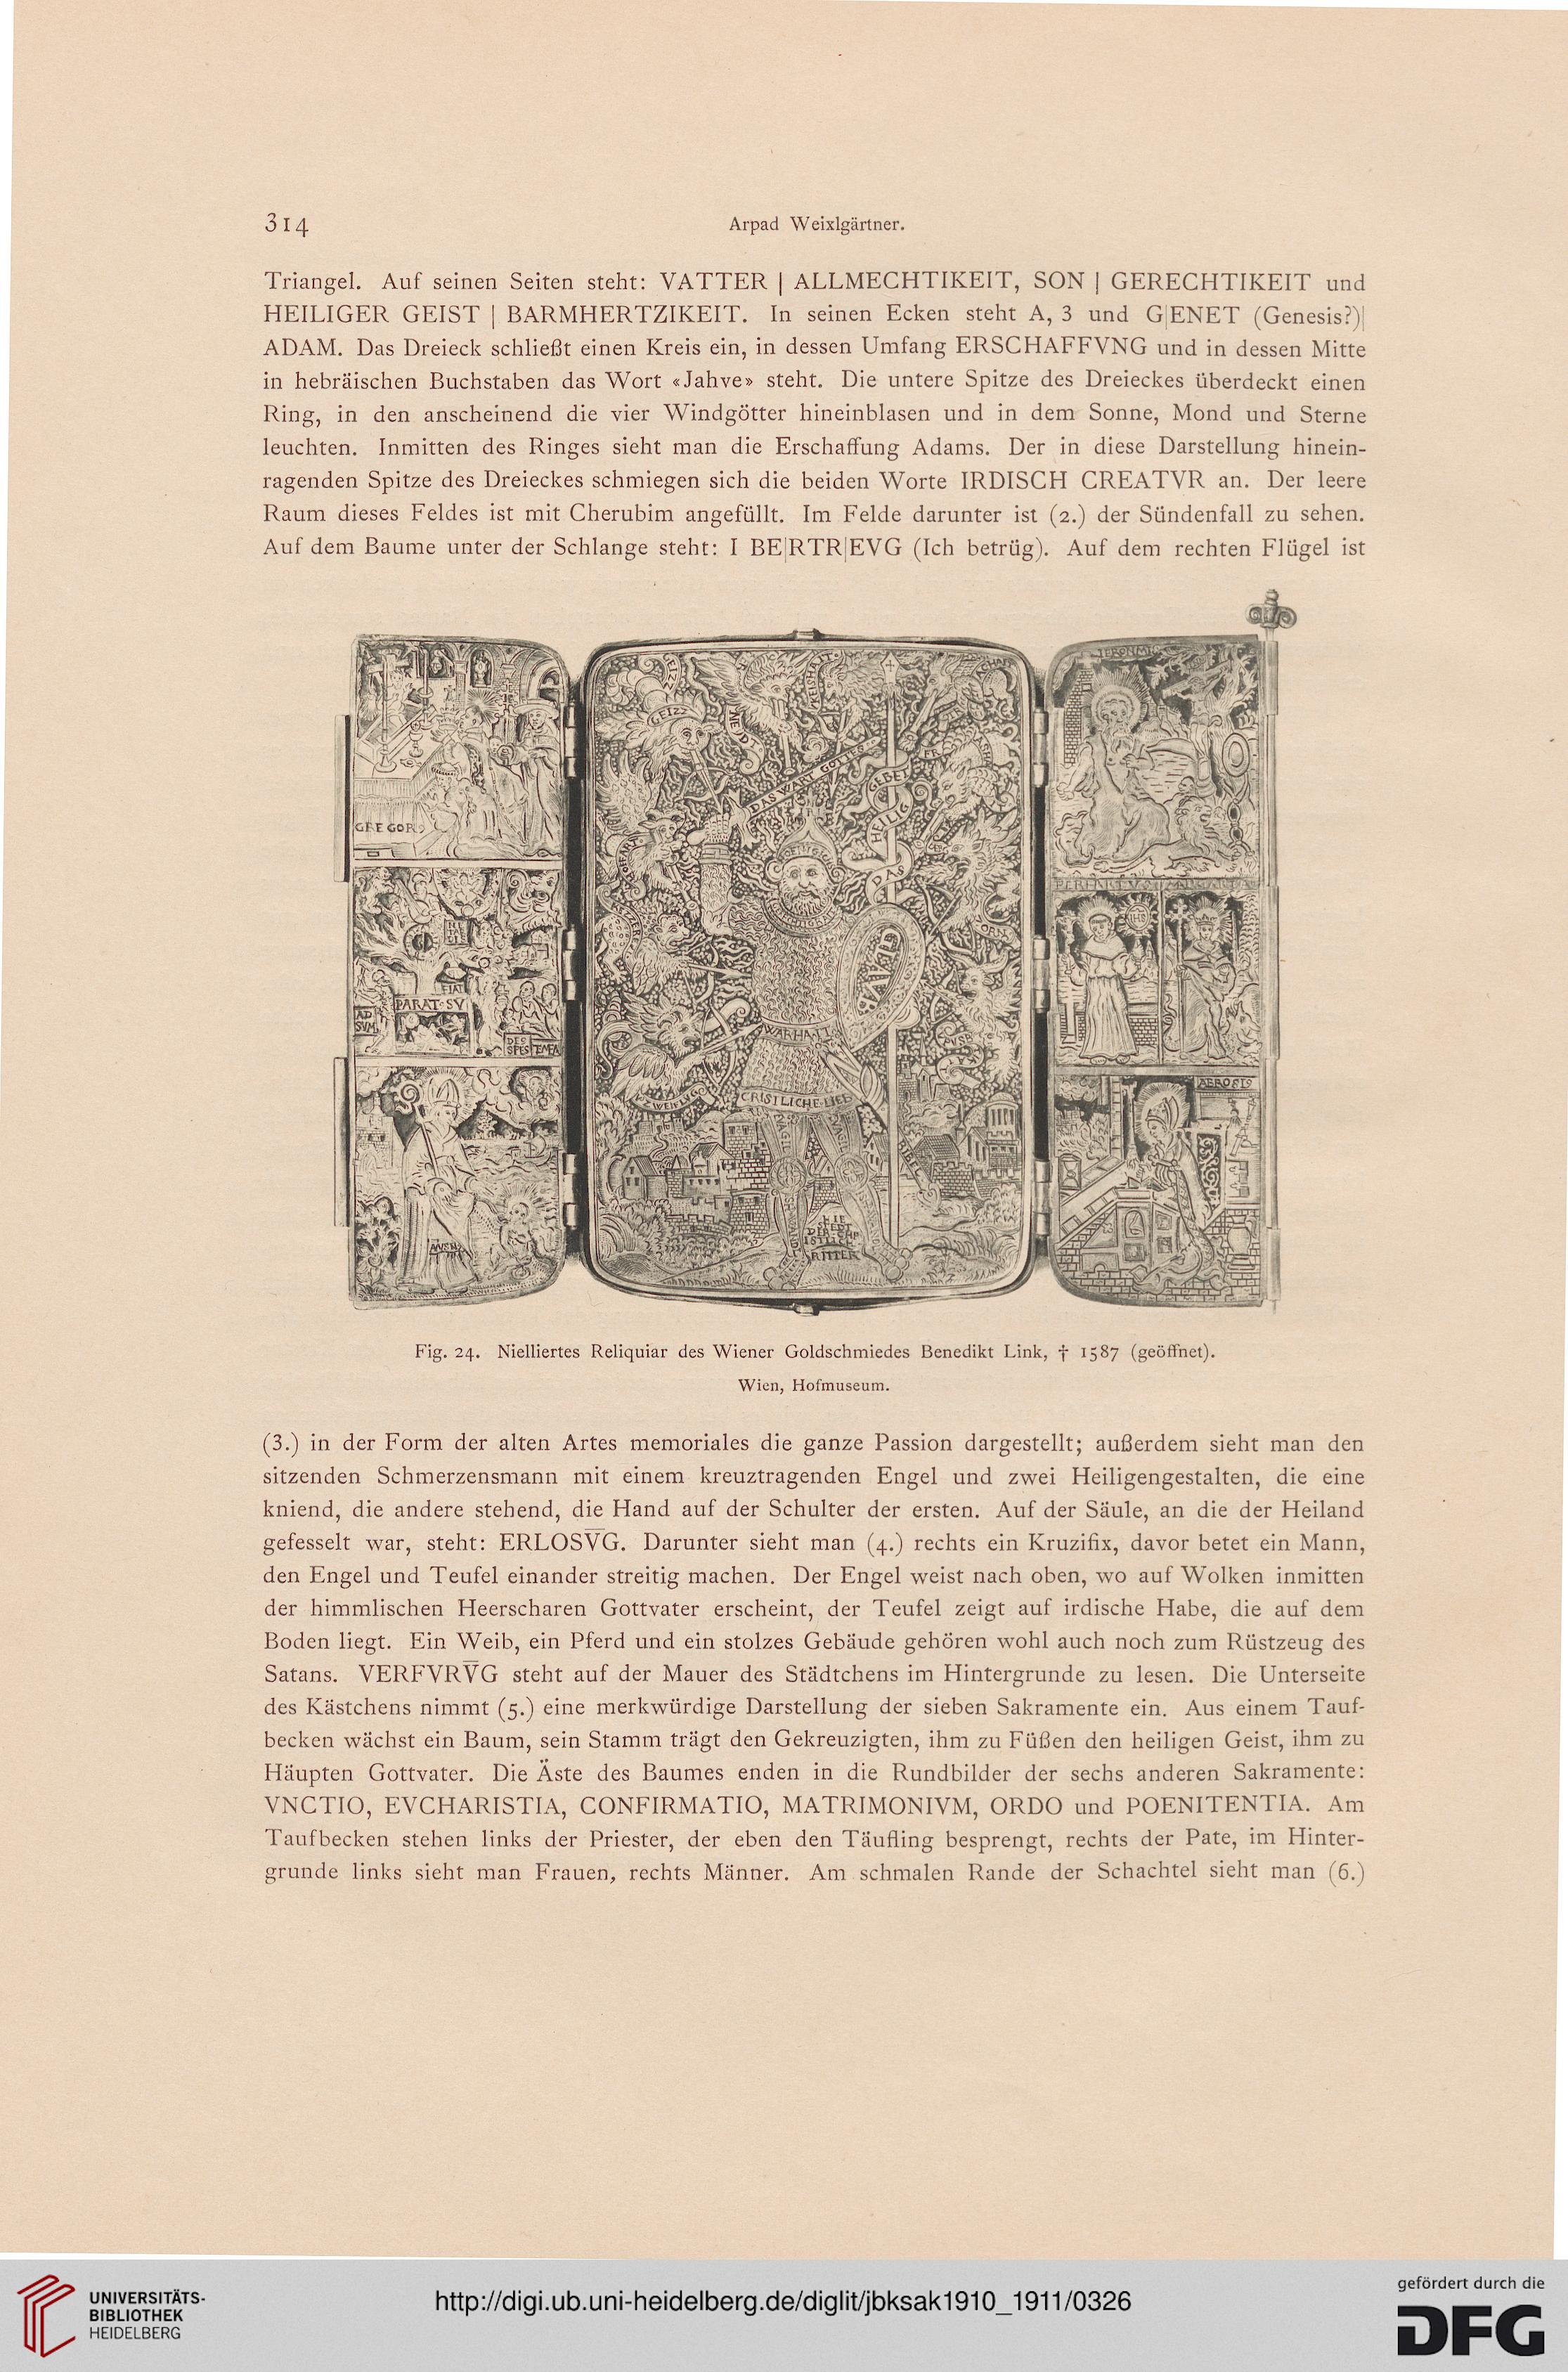 314
Arpad Weixlgärtner.
Triangel. Auf seinen Seiten steht: VATTER | ALLMECHTIKEIT, SON | GERECHTIKEIT und
HEILIGER GEIST | BARMHERTZIKEIT. In seinen Ecken steht A, 3 und G|ENET (Genesis?)|
ADAM. Das Dreieck schließt einen Kreis ein, in dessen Umfang ERSCHAFFVNG und in dessen Mitte
in hebräischen Buchstaben das Wort «Jahve» steht. Die untere Spitze des Dreieckes überdeckt einen
Ring, in den anscheinend die vier Windgötter hineinblasen und in dem Sonne, Mond und Sterne
leuchten. Inmitten des Ringes sieht man die Erschaffung Adams. Der in diese Darstellung hinein-
ragenden Spitze des Dreieckes schmiegen sich die beiden Worte IRDISCH CREATVR an. Der leere
Raum dieses Feldes ist mit Cherubim angefüllt. Im Felde darunter ist (2.) der Sündenfall zu sehen.
Auf dem Baume unter der Schlange steht: I BE|RTR|EVG (Ich betrüg). Auf dem rechten Flügel ist
GEIZZ
DAS WART GOTTES
GEBET
HEILIG
DAS
GLAVB
WARHAIT
CRISTLICHE LIEB
RITTER
PARAT SV
FIAT
AD
SVM
DES
SPES
Fig. 24. Nielliertes Reliquiar des Wiener Goldschmiedes Benedikt Link, † 1587 (geöffnet).
Wien, Hofmuseum.
(3.) in der Form der alten Artes memoriales die ganze Passion dargestellt; außerdem sieht man den
sitzenden Schmerzensmann mit einem kreuztragenden Engel und zwei Heiligengestalten, die eine
kniend, die andere stehend, die Hand auf der Schulter der ersten. Auf der Säule, an die der Heiland
gefesselt war, steht: ERLOSV̅G. Darunter sieht man (4.) rechts ein Kruzifix, davor betet ein Mann,
den Engel und Teufel einander streitig machen. Der Engel weist nach oben, wo auf Wolken inmitten
der himmlischen Heerscharen Gottvater erscheint, der Teufel zeigt auf irdische Habe, die auf dem
Boden liegt. Ein Weib, ein Pferd und ein stolzes Gebäude gehören wohl auch noch zum Rüstzeug des
Satans. VERFVRV̅G steht auf der Mauer des Städtchens im Hintergrunde zu lesen. Die Unterseite
des Kästchens nimmt (5.) eine merkwürdige Darstellung der sieben Sakramente ein. Aus einem Tauf-
becken wächst ein Baum, sein Stamm trägt den Gekreuzigten, ihm zu Füßen den heiligen Geist, ihm zu
Häupten Gottvater. Die Äste des Baumes enden in die Rundbilder der sechs anderen Sakramente:
VNCTIO, EVCHARISTIA, CONFIRMATIO, MATRIMONIVM, ORDO und POENITENTIA. Am
Taufbecken stehen links der Priester, der eben den Täufling besprengt, rechts der Pate, im Hinter-
grunde links sieht man Frauen, rechts Männer. Am schmalen Rande der Schachtel sieht man (6.)
UNIVERSITÄTS-
BIBLIOTHEK
HEIDELBERG
http://digi.ub.uni-heidelberg.de/diglit/jbksak1910_1911/0326
gefördert durch die
DFG